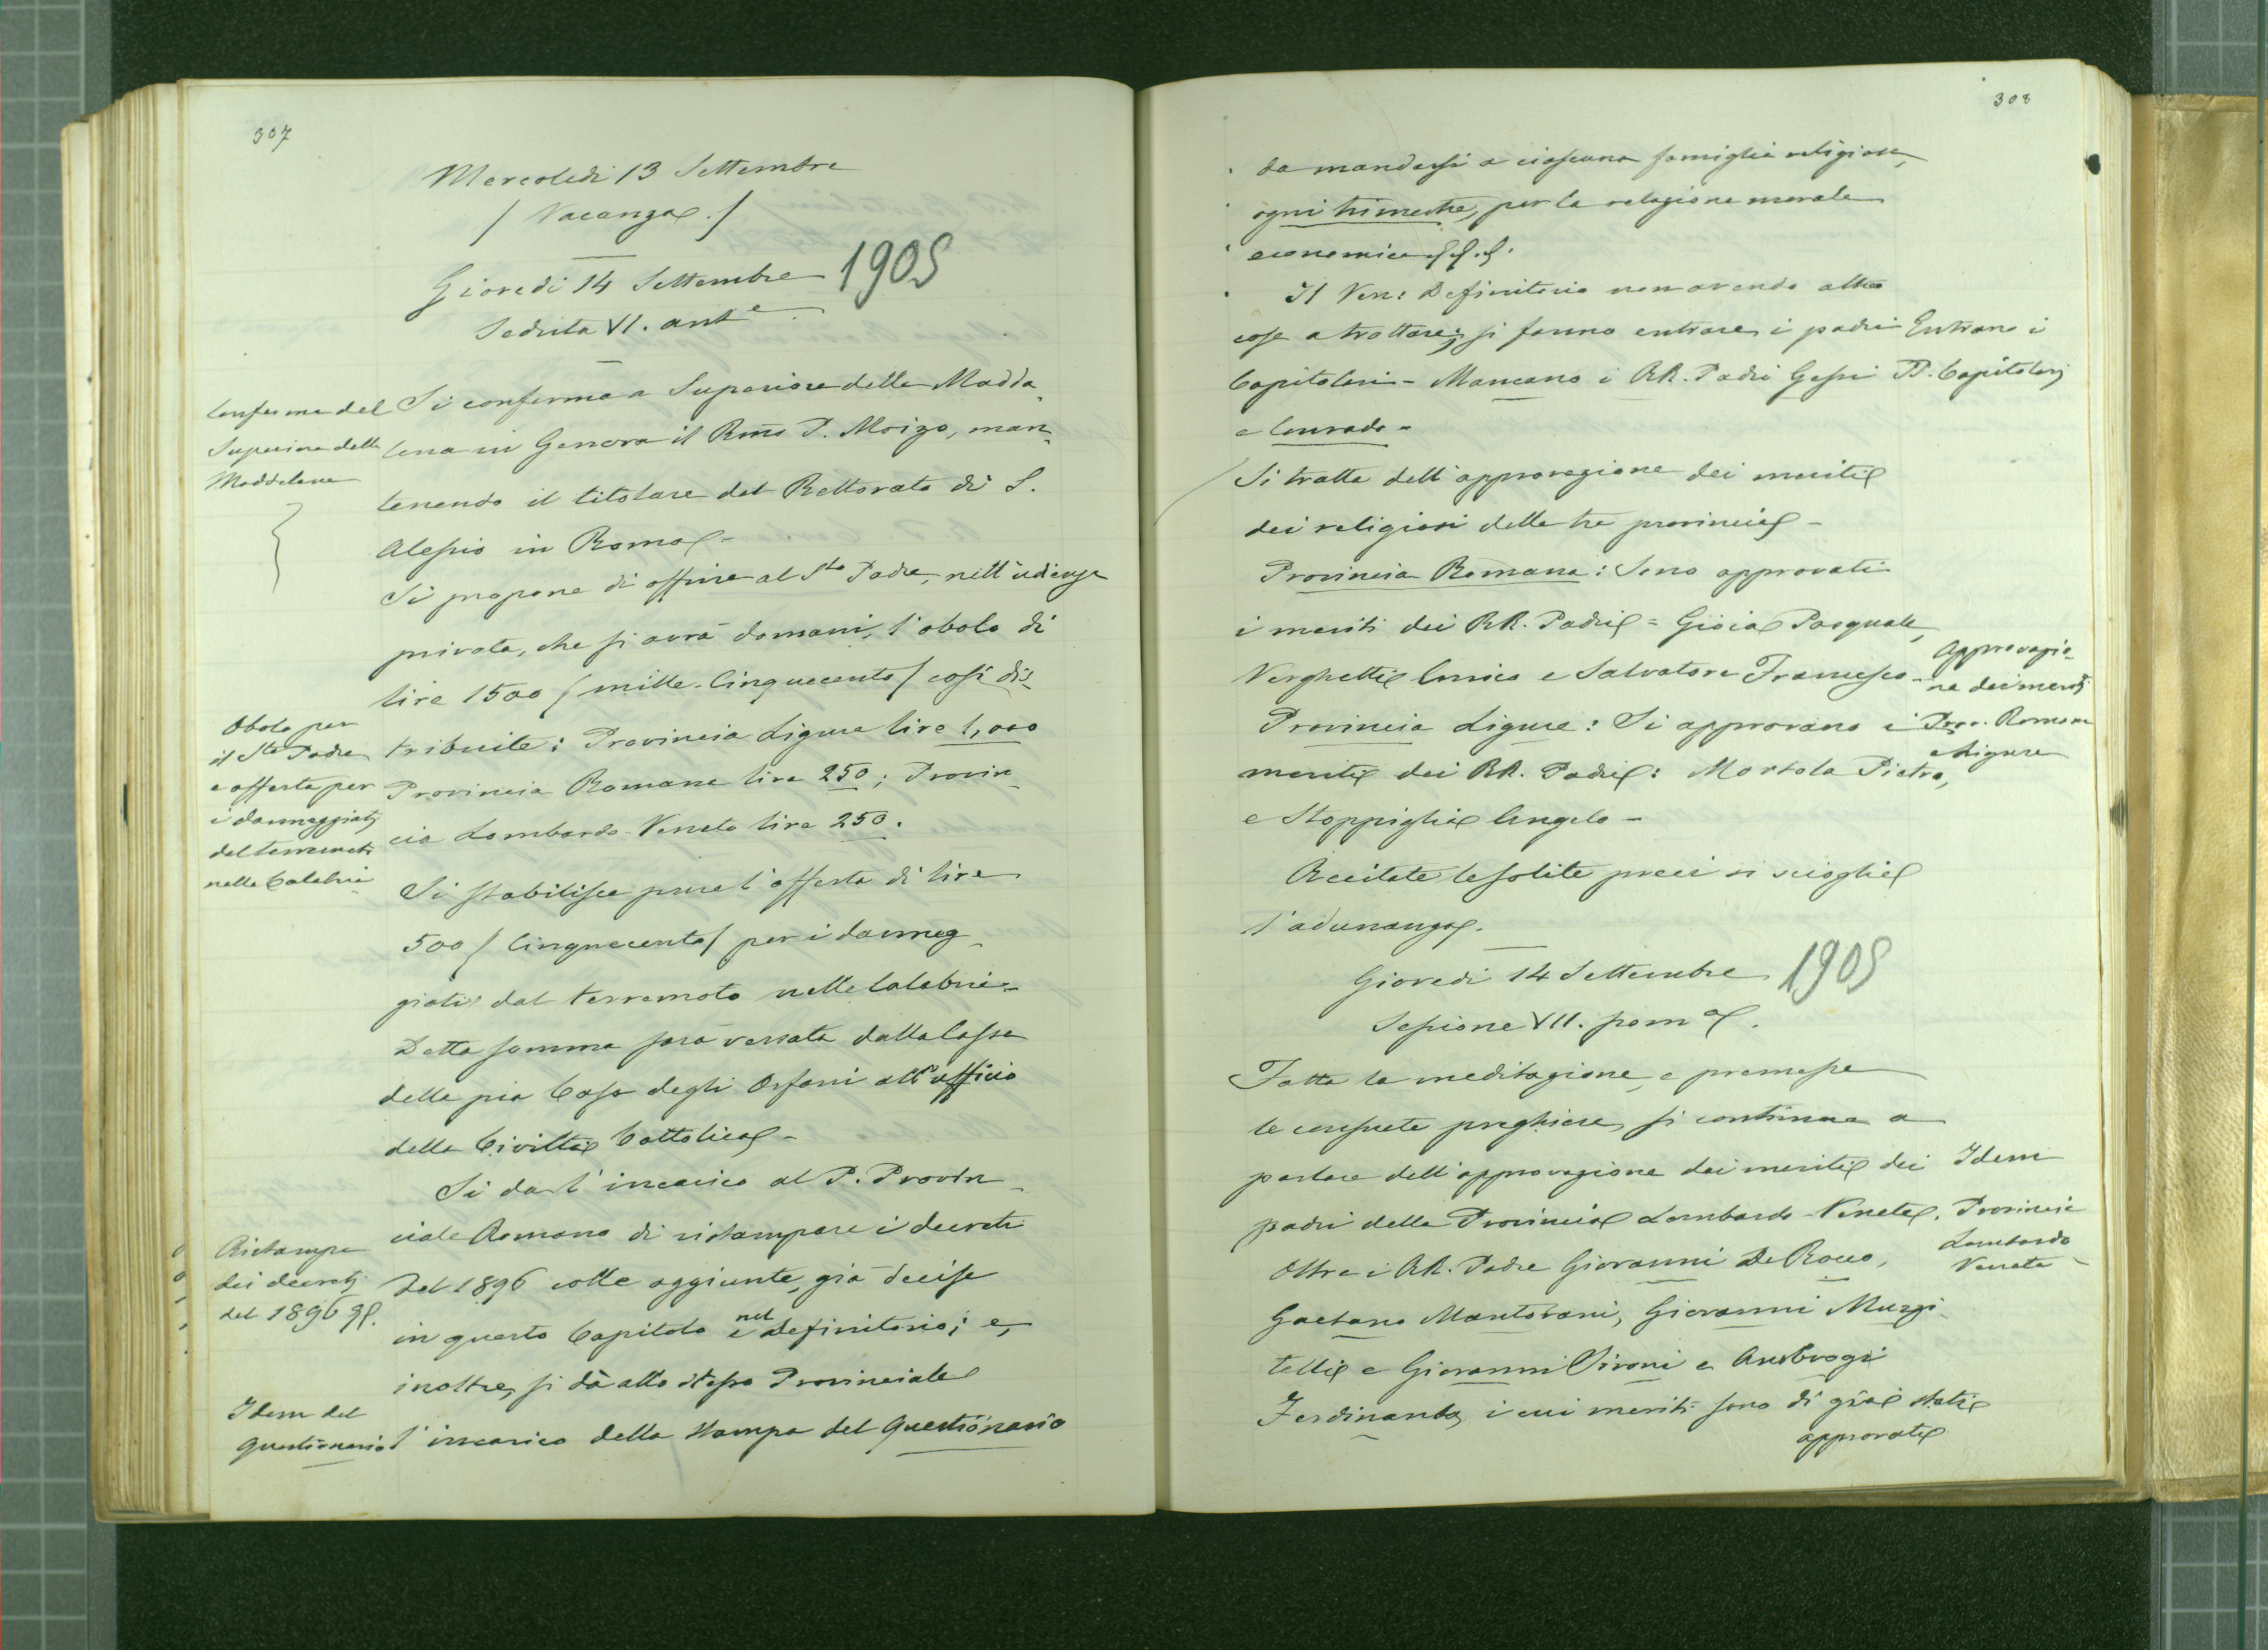 307
Mercoledì 13 Settembre
/ Vacanza. /
Giovedì 14 Settembre 1905
Seduta VI. ant.e
Conferma del
Superiore della
Maddalena
Si conferma a Superiore della Madda-
lena in Genova il Rmo P. Moizo, man-
tenendo il titolare del Rettorato di S.
Alessio in Roma -
Si propone di offrire al Sto Padre, nell'udienza
privata, che si avrà domani, l'obolo di
lire 1500 / mille-Cinquecento / così dis-
Obolo per
il Sto Padre
e offerta per
i danneggiati
dal terremoto
nelle Calabrie
tribuite: Provincia Ligure lire 1,000
Provincia Romana lire 250; Provin-
cia Lombardo-Veneto lire 250.
Si stabilisce pure l'offerta di lire
500 / Cinquecento / per i danneg-
giati dal terremoto nelle Calabrie -
Detta somma sarà versata dalla Cassa
della pia Casa degli Orfani all'ufficio
della Civiltà Cattolica -
Si dà l'incarico al P. Provin-
ciale Romano di ristampare i decreti
Ristampa
dei decreti
del 1896
del 1896 colle aggiunte, già decise
in questo Capitolo e nel Definitorio; e,
inoltre, si dà allo stesso Provinciale
Idem del
Questionario
l'incarico della stampa del Questionario
308
da mandarsi a ciascuna famiglia religiosa,
ogni trimestre, per la relazione morale
economica
Il Ven: Definitorio non avendo altre
cose a trattare; si fanno entrare i padri
Entrano i
PP. Capitolari
Capitolari - Mancano i RR. Padri Gessi
e Conrado -
Si tratta dell'approvazione dei meriti
dei religiosi delle tre provincie -
Provincia Romana: Sono approvati
i meriti dei RR. Padri = Gioia Pasquale,
Verghetti Enrico e Salvatore Francesco -
Approvazio-
ne dei meriti
Prov. Romana
e Ligure
Provincia Ligure: Si approvano i
meriti dei RR. Padri: Mortola Pietro,
e Stoppiglia Angelo -
Recitate le solite preci si scioglie
l'adunanza.
Giovedì 14 Settembre 1905
Sessione VII. pom.a
Fatta la meditazione, e premesse
le consuete preghiere, si continua a
parlare dell'approvazione dei meriti dei
Idem
Provincia
Lombardo
Veneta -
padri della Provincia Lombardo-Veneta.
Oltre i RR. Padre Giovanni De Rocco,
Gaetano Mantovani, Giovanni Muzi-
telli e Giovanni Sironi e Ambrogi
Ferdinando, i cui meriti sono di già stati
approvati